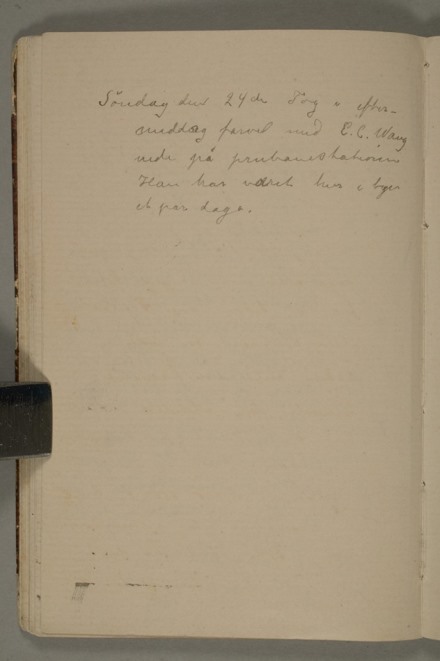 Söndag den 24de Tog i efter-
middag farvel med E. C. Wang
nede på jernbanestationen
Han har været her i byen
et par dage.